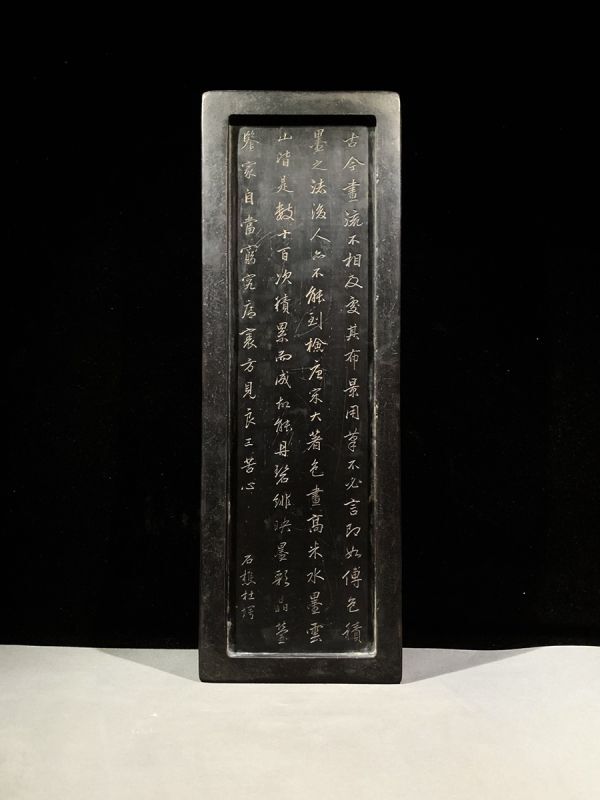 古今畫流不相及處其布景用筆不必言即如傅色積
墨之法後人亦不能到撿唐宋大著色畫高米水墨雲
山皆是數十百次積累而成故能丹碧緋映墨彩晶瑩
鑒家自當窮究底裏方見良工苦心
石樵杜堮